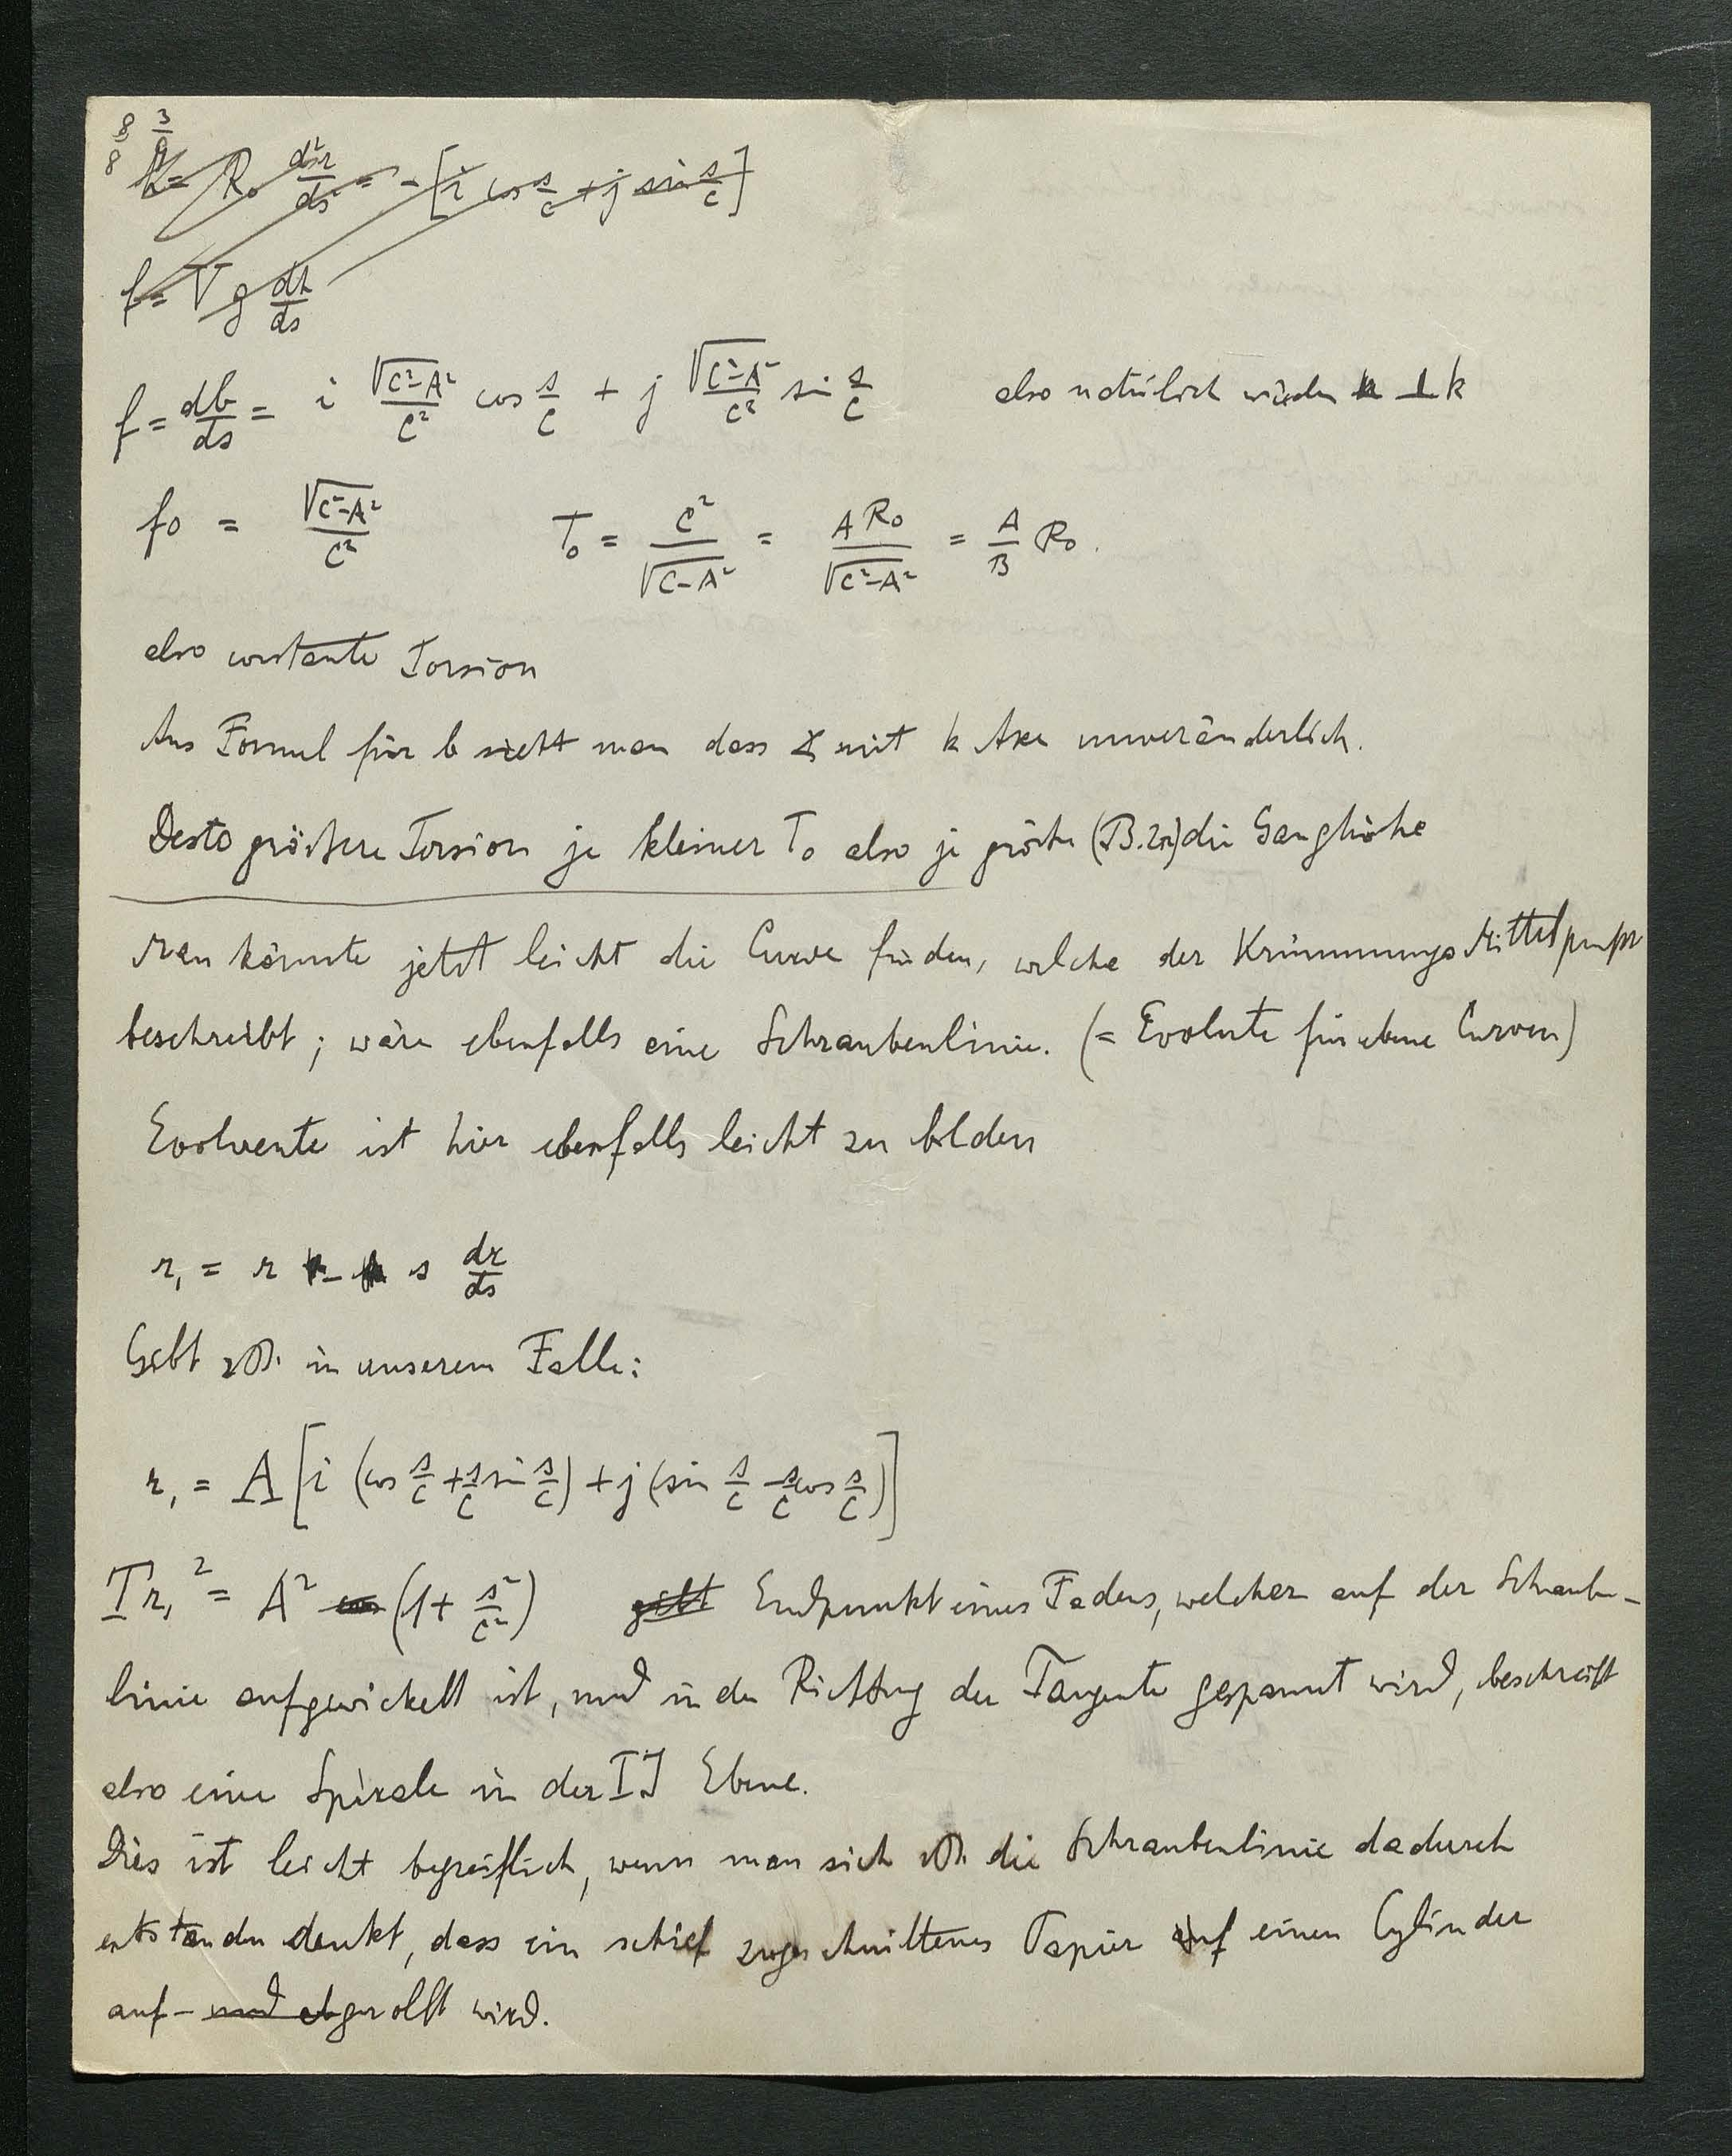 8 3
8
R₀ d²r/ds² = - [i cos s/c + j sin s/c]
f =
f = db/ds = i √(C²-A²)/C² cos s/C + j √(C²-A²)/C² sin s/C also natürlich wieder ⊥ k
f₀ = √(C²-A²)/C² T₀ = C²/√(C-A²) = A R₀/√(C²-A²) = A/B R₀.
also constante Torsion
Aus Formel für b sieht man dass ∡ mit k Axe unveränderlich.
Desto grössere Torsion je kleiner T₀ also je grösser (B.2π) die Ganghöhe
Man könnte jetzt leicht die Curve finden, welche der Krümmungs Mittelpunkt
beschreibt; wäre ebenfalls eine Schraubenlinie. (= Evolute für ebene Curven)
Evolvente ist hier ebenfalls leicht zu bilden
r₁ = r - s dr/ds
Gibt in unserem Falle:
r₁ = A [i (cos s/C + s/C sin s/C) + j (sin s/C - s/C cos s/C)]
Tr₁² = A² (1 + s²/C²) gibt Endpunkt eines Fadens, welcher auf der Schrauben-
linie aufgewickelt ist, und in der Richtung der Tangente gespannt wird, beschreibt
also eine Spirale in der IJ Ebene.
Dies ist leicht begreiflich, wenn man sich die Schraubenlinie dadurch
entstanden denkt, dass ein schief zugeschnittenes Papier auf einen Cylinder
auf- und abgerollt wird.